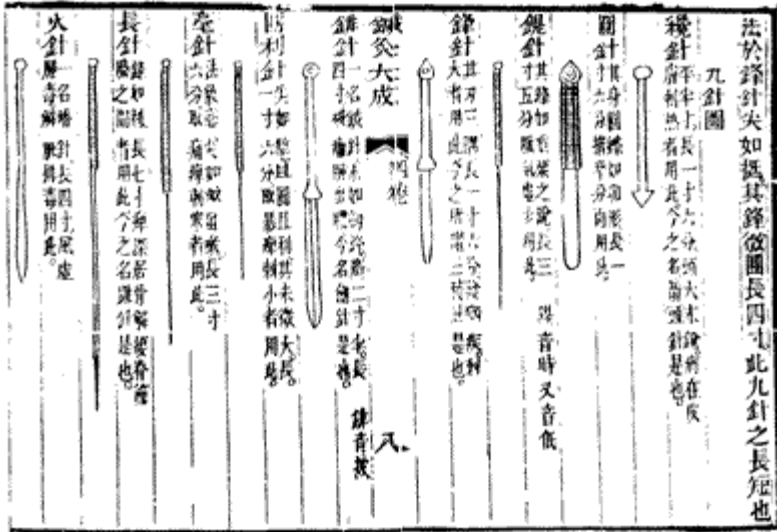 法於鋒針尖如挺其鋒微圓長四寸此九針之長短也
九針圖
鑱針平半寸長一寸六分頭大末銳病在皮
膚刺熱者用此今之名箭頭針是也
圓針其身圓鋒如卵形長一
寸六分揩摩分肉用此
鍉針其鋒如黍粟之銳長三
寸五分脈氣虛少用此
鍉音時又音低
鋒針其刃三隅長一寸六分
大者用此今之所謂三稜針是也
鍼灸大成
四卷
八
鈹針一名鈹針末如劍鋒廣二寸半長
四寸破癰腫出膿今名鈹針是也
鈹音披
利針尖如氂且圓且利其末微大長
一寸六分取暴痺刺小者用此
毫針法象毫尖如蚊虻喙長三寸
六分取痛痺刺寒者用此
長針鋒如利長七寸痺深居骨解腰脊
腠之間者用此今之名跳針是也
火針一名燔針長四寸風虛
腫毒解肌排毒用此